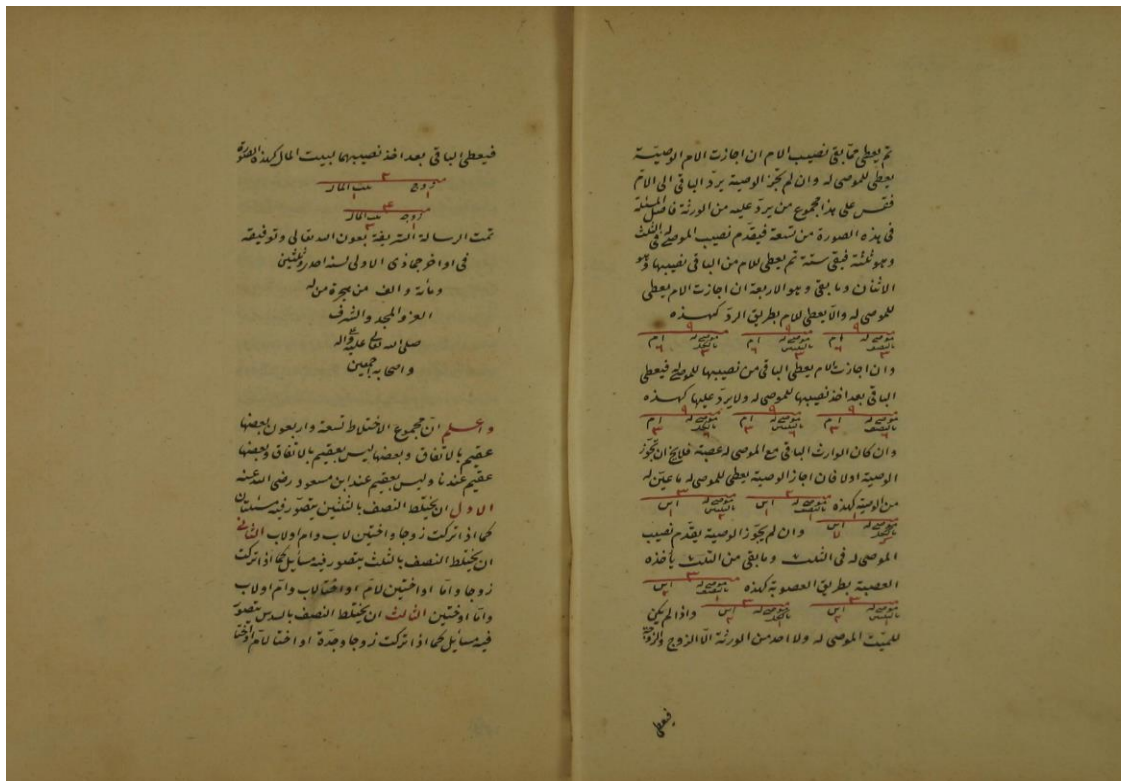 ثم يعطى مما بقى نصيب الام ان اجازت الام الوصية
يعطى للموصى له وان لم يجز الوصية يرد الباقى الى الام
فقس على هذا مجموع من يرد عليه من الورثة فاصل المسئلة
فى هذه الصورة من تسعة فيقدم نصيب الموصى له فى الثلث
وهو ثلثة فبقى ستة ثم يعطى للام من الباقى نصيبها وهو
الاثنان وما بقى وهو الاربعة ان اجازت الام يعطى
للموصى له والا يعطى للام بطريق الرد كهذه
٩ ٩ ٩
موصى له بالنصف ام موصى له بالسدس ام موصى له بالكل ام
٣ ٦ ٣ ٦ ٣ ٦
وان اجازت الام يعطى الباقى من نصيبها للموصى له فيعطى
الباقى بعد اخذ نصيبها للموصى له ولا يرد عليها كهذه
٩ ٩ ٩
موصى له بالنصف ام موصى له ام موصى له بالكل ام
٦ ٣ ٦ ٣ ٦ ٣
وان كان الوارث الباقى مع الموصى له عصبة فلا يخ ان تجوز
الوصية اولا فان اجاز الوصية يعطى للموصى له ما عين له
من الوصية كهذه موصى له ابن موصى له ابن
موصى له بالكل ابن وان لم يجوز الوصية يقدم نصيب
الموصى له فى الثلث وما بقى من الثلث يأخذه
العصبة بطريق العصوبة كهذه موصى له بالنصف ابن
موصى له ابن موصى له بالكل ابن واذا لم يكن
للميت الموصى له ولا احد من الورثة الا الزوج والزوجة
فيعطى
فيعطى الباقى بعد اخذ نصيبهما لبيت المال كهذه الصورة
٢
زوج بيت المال
٤
زوجة بيت المال
تمت الرسالة الشريفة بعون الله تعالى وتوفيقه
فى اواخر جماذى الاولى لسنة احد وثلثين
ومأية والف من هجرة من له
العز والمجد والشرف
صلى الله تعالى عليه وآله
واصحابه اجمعين
واعلم ان مجموع الاختلاط تسعة واربعون بعضها
عقيم بالاتفاق وبعضها ليس بعقيم بالاتفاق وبعضها
عقيم عندنا وليس بعقيم عند ابن مسعود رضى الله عنه
الاول ان يختلط النصف بالثلثين يتصور فيه مسئلتان
كما اذا تركت زوجا واختين لاب وام او لاب الثانى
ان يختلط النصف بالثلث يتصور فيه مسايل كما اذا تركت
زوجا واما او اختين لام او اختا لاب وام او لاب
واما او اختين الثالث ان يختلط النصف بالسدس يتصور
فيه مسايل كما اذا تركت زوجا وجدة او اختا لام او اختا